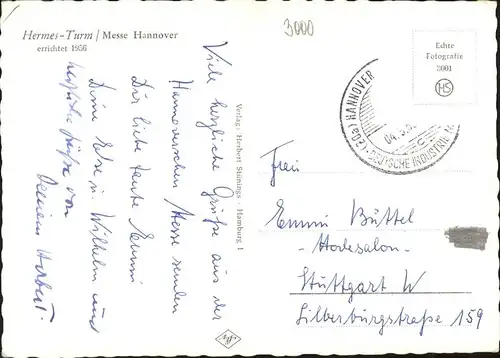 Hermes-Turm / Messe Hannover
errichtet 1956
3000
Echte
Fotografie
3001
HS
(20a) HANNOVER
04.5.5
DEUTSCHE INDUSTRIE
Viele herzliche Grüße aus der
Hannoverschen Messe senden
Dir liebe Tante Emmi
Deine Else u. Wilhelm und
herzliche Grüße von
Deinem Herbert
Verlag: Herbert Stünings - Hamburg 1
Frau
Emmi Büttel
- Modesalon -
Stuttgart W
Silberburgstraße 159